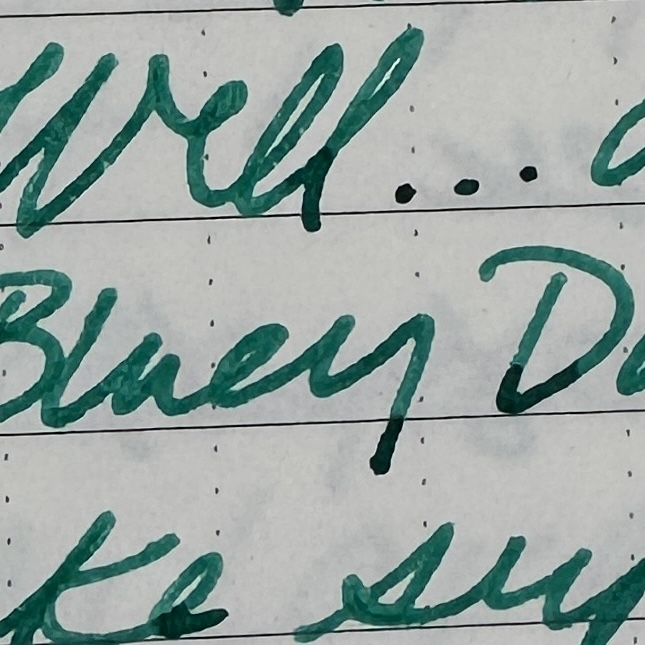 Well...
Bluey D
ke su